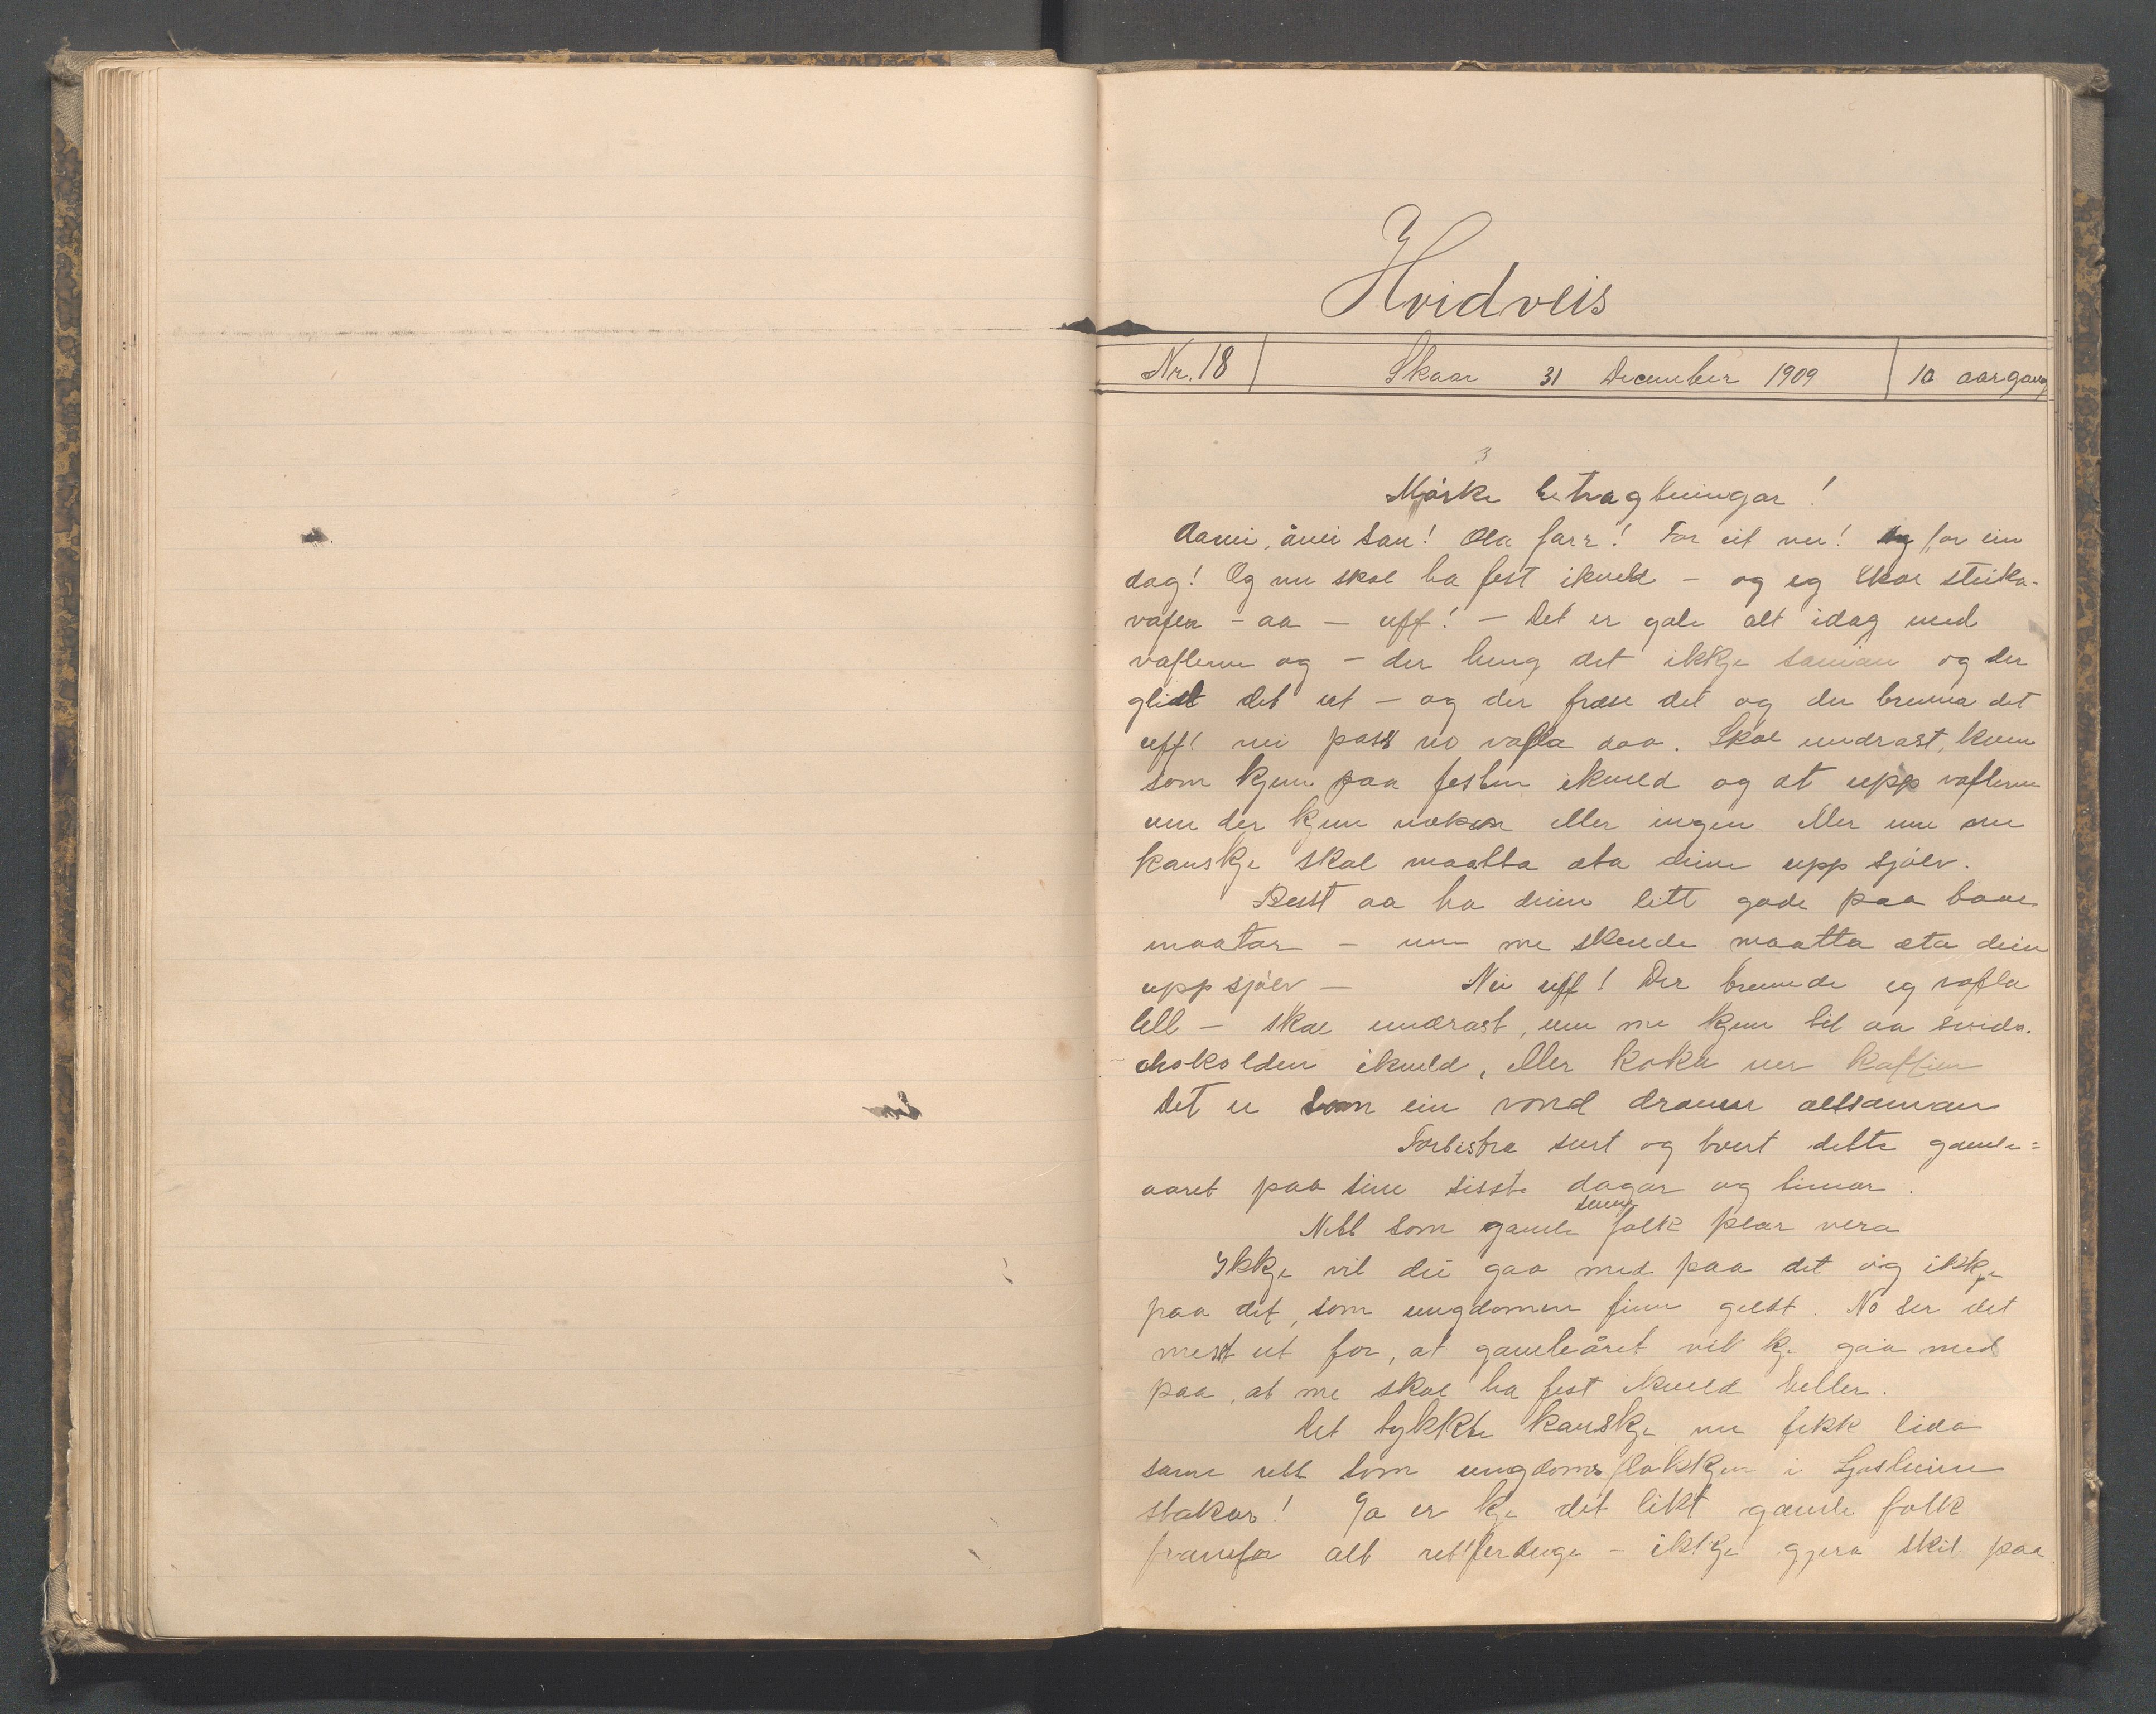 Hvidveis
Nr. 18 Skaar 31 December 1909 10 aargang
3
Mørke betragtningar!
Aanei, ånei san! Ola farr! For eit ver! og for ein
dag! Og me skal ha fest ikveld - og eg skal steika
vafla - aa - uff! - Det er gale alt idag med
vaflerne og - der heng det ikkje saman og der
glidt det ut - og der fræse det og der brenna det
uff! nei pass no vafla daa. Skal undrast, kven
som kjem paa festen ikveld og æt upp vaflerne
um der kjem nokon eller ingen eller um me
kanskje skal maatta æta deim upp sjølv.
Best aa ha deim litt gode paa baae
maatar - um me skulde maatta æta deim
upp sjølv - Nei uff! Der brennde eg vafla
lell - skal undrast, um me kjem til aa svida
chokolden ikveld, eller koka ner kaffien
Det er som ein vond draum altsaman
Forbistra surt og tvert dette gamle=
aaret paa sine siste dagar og timar.
Nett som gamle sume folk plar vera
Ikkje vil dei gaa med paa det og ikkje
paa dit, som ungdomen finn gildt. No ser det
mest ut for, at gamleåret vil kje gaa med
paa, at me skal ha fest ikveld heller.
Det tykkte kanskje me fekk lida
same rett som ungdomsflokkjen i Ljosheim
stakar! Ja er kje det likt gamle folk
framfor alt rettferduge - ikkje gjera skil paa